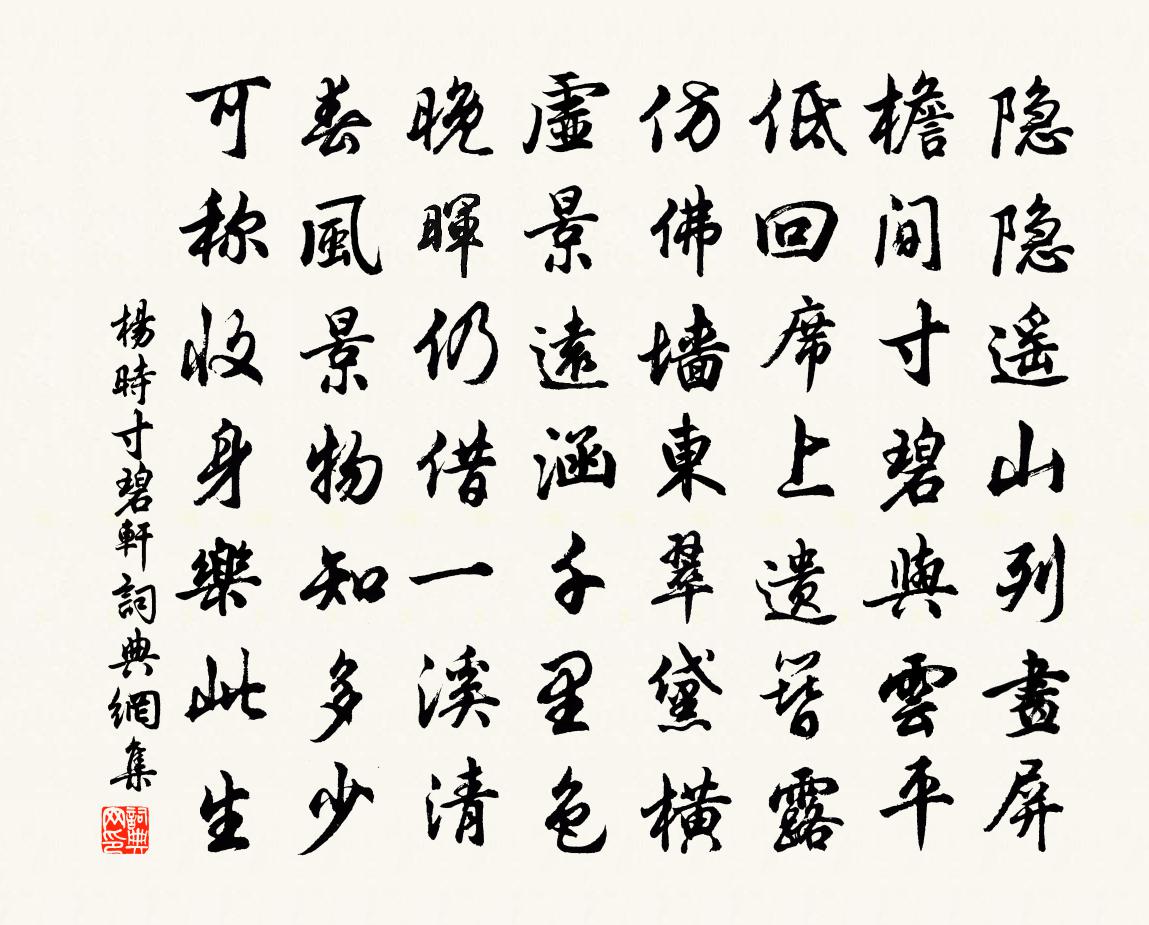 隐隐遥山列畫屏
檐间寸碧與雲平
低回席上遗簪露
仿佛墙東翠黛橫
虛景遠涵千里色
晚暉仍借一溪清
春風景物知多少
可称收身樂此生
楊時寸碧軒詞典網集
詞典网印